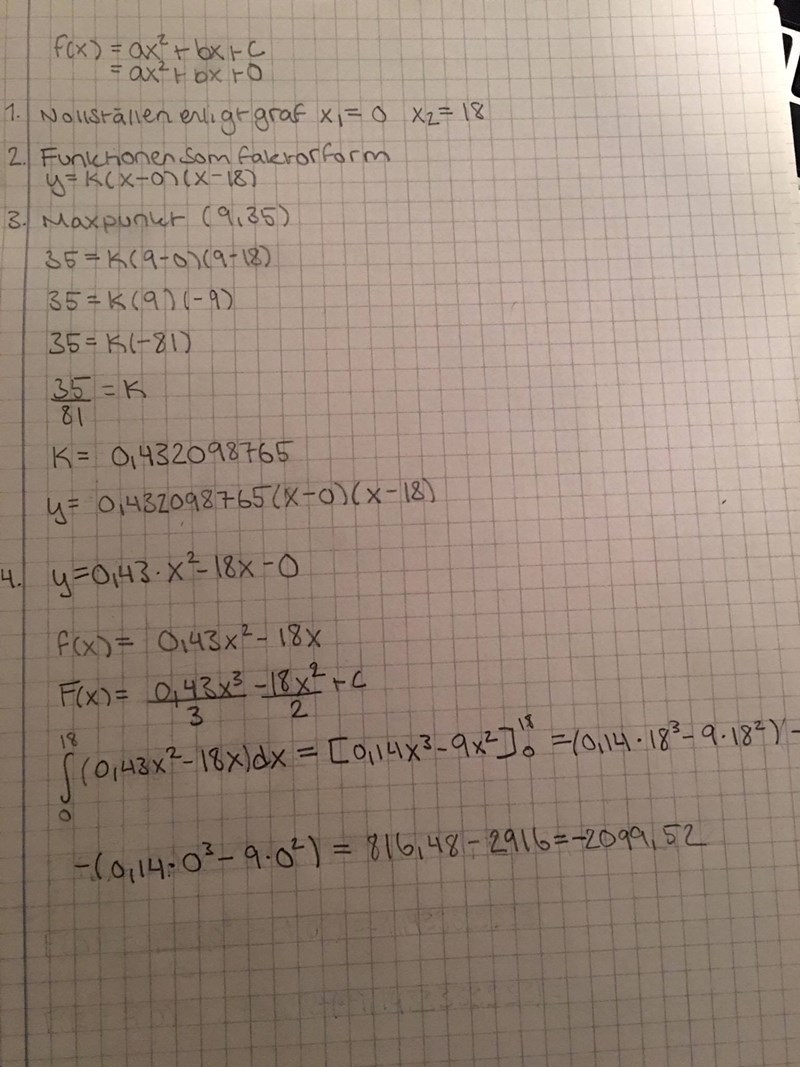 f(x) = ax² + bx + C
= ax² + bx + 0
1. Nollställen enligt graf x₁ = 0 x₂ = 18
2. Funktionen som faktorform
y = K(x-0)(x-18)
3. Maxpunkt (9,35)
35 = K(9-0)(9-18)
35 = K(9)(-9)
35 = K(-81)
35/81 = K
K = 0,432098765
y = 0,432098765(x-0)(x-18)
4. y = 0,43·x² - 18x - 0
f(x) = 0,43x² - 18x
F(x) = 0,43x³/3 - 18x²/2 + C
∫₀¹⁸ (0,43x² - 18x)dx = [0,14x³ - 9x²]₀¹⁸ = (0,14·18³ - 9·18²) -
-(0,14·0³ - 9·0²) = 816,48 - 2916 = -2099,52